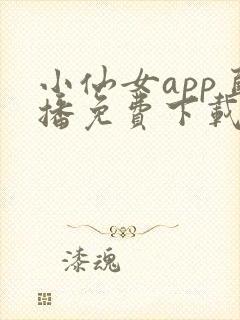 小仙女app直
播免費下載
漆魂